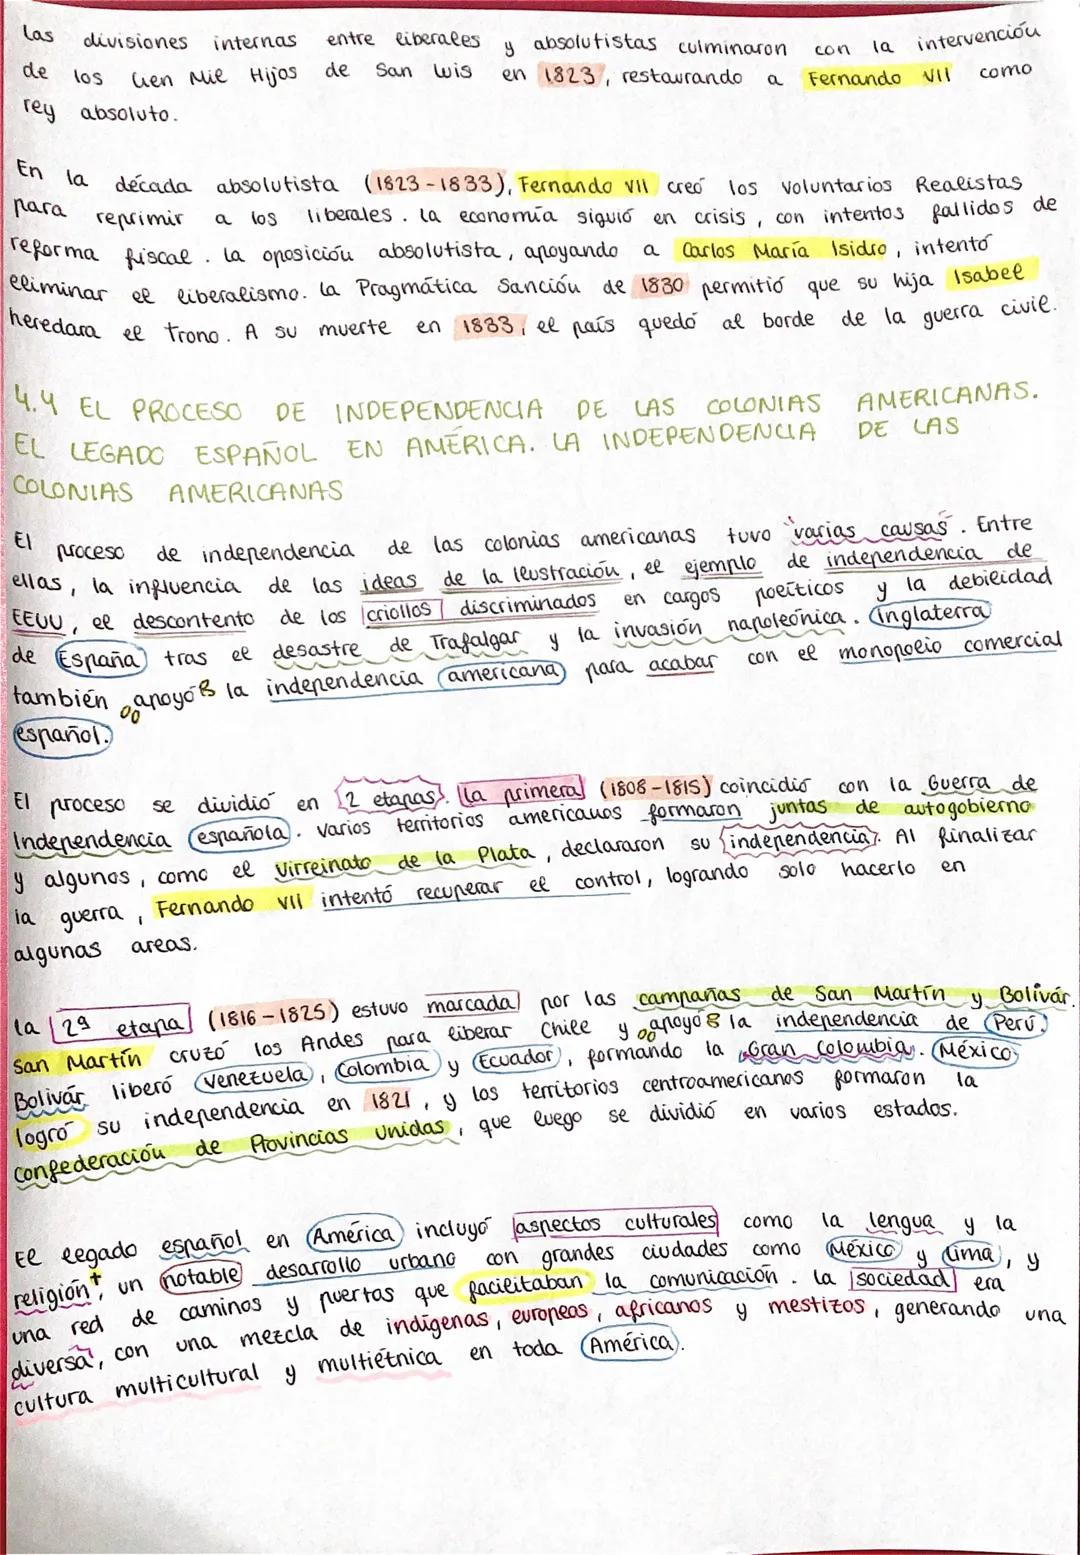 Las divisiones internas entre liberales y absolutistas culminaron con la intervención
de los Cien Mil Hijos de San Luis en 1823, restaurando a Fernando VII como
rey absoluto.
En la década absolutista (1823-1833), Fernando VII creó los Voluntarios Realistas
para reprimir a los liberales. La economía siguió en crisis, con intentos fallidos de
reforma fiscal. La oposición absolutista, apoyando a Carlos María Isidro, intentó
eliminar el liberalismo. La Pragmática Sanción de 1830 permitió que su hija Isabel
heredara el trono. A su muerte en 1833, el país quedó al borde de la guerra civil.
4.4 EL PROCESO DE INDEPENDENCIA DE LAS COLONIAS AMERICANAS.
EL LEGADO ESPAÑOL EN AMÉRICA. LA INDEPENDENCIA DE LAS
COLONIAS AMERICANAS
El proceso de independencia de las colonias americanas tuvo varias causas. Entre
ellas, la influencia de las ideas de la Ilustración, el ejemplo de independencia de
EEUU, el descontento de los criollos discriminados en cargos políticos y la debilidad
de España tras el desastre de Trafalgar y la invasión napoleónica. Inglaterra
también apoyó la independencia americana para acabar con el monopolio comercial
español.
El proceso se dividió en 2 etapas. La primera (1808-1815) coincidió con la Guerra de
Independencia española. Varios territorios americanos formaron juntas de autogobierno
y algunos, como el Virreinato de la Plata, declararon su independencia. Al finalizar
la guerra, Fernando VII intentó recuperar el control, logrando solo hacerlo en
algunas areas.
La 2ª etapa (1816-1825) estuvo marcada por las campañas de San Martín y Bolivár.
San Martín cruzó los Andes para liberar Chile y apoyó la independencia de Perú.
Bolivár liberó Venezuela, Colombia y Ecuador, formando la Gran Colombia. México
logró su independencia en 1821, y los territorios centroamericanos formaron la
Confederación de Provincias Unidas, que luego se dividió en varios estados.
El legado español en América incluyó aspectos culturales como la lengua y la
religión, un notable desarrollo urbano con grandes ciudades como México y Lima, y
una red de caminos y puertos que facilitaban la comunicación. La sociedad era
diversa, con una mezcla de indígenas, europeos, africanos y mestizos, generando una
cultura multicultural y multiétnica en toda América.